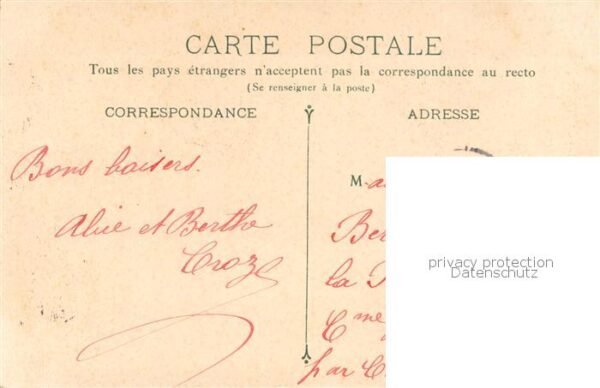 CARTE POSTALE
Tous les pays étrangers n'acceptent pas la correspondance au recto
(Se renseigner à la poste)
CORRESPONDANCE
ADRESSE
Bons baisers.
Alice et Berthe
Croze
M-a
Ber
la
C me
par C
privacy protection
Datenschutz